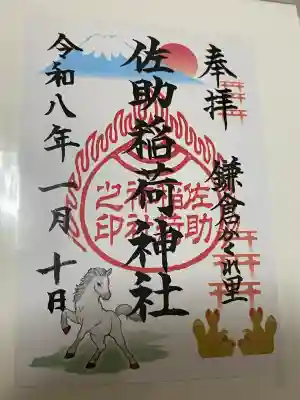 奉拝
鎌倉かくれ里
佐助稲荷神社
佐助
稲荷
神社
之印
令和八年一月十日